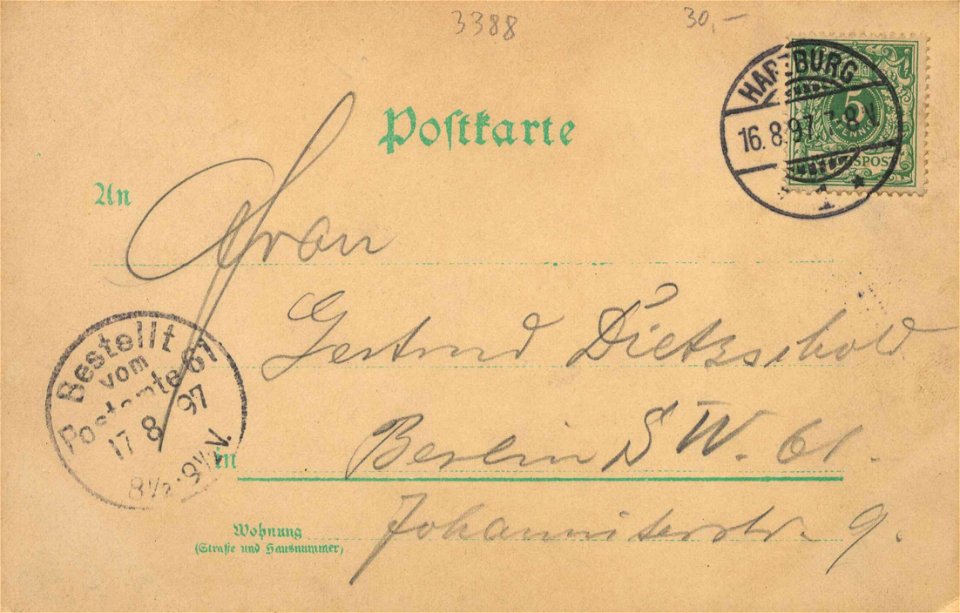 3388
30,–
Postkarte
HARZBURG
16.8.97. 7-8 V.
1
5
PFENNIG
REICHSPOST
An
Frau
Gertrud Dietzschold
Bestellt
vom
Postamte 61
17 8 97
8½-9½V.
in
Berlin SW. 61.
Wohnung
(Straße und Hausnummer)
Johanniterstr. 9.